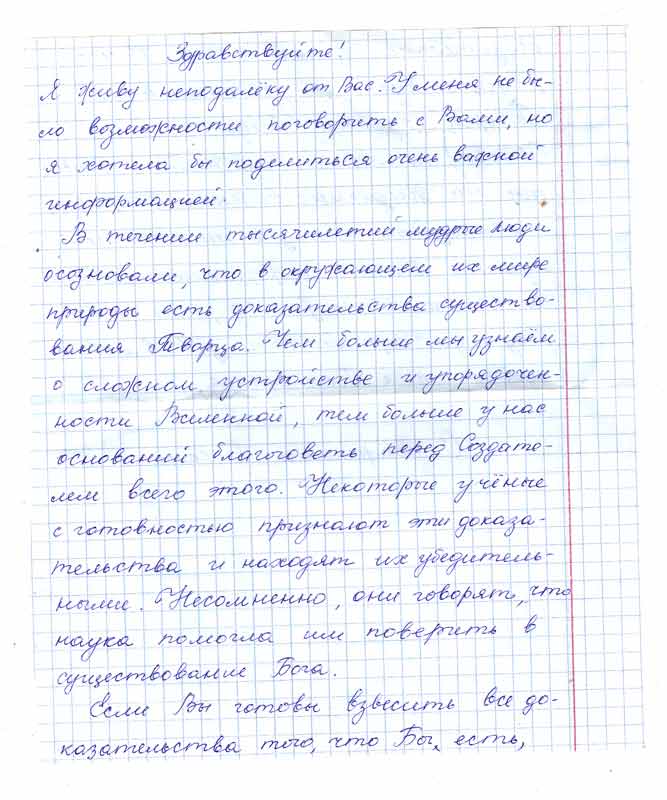 Здравствуйте!
Я живу неподалёку от Вас. У меня не бы-
ло возможности поговорить с Вами, но
я хотела бы поделиться очень важной
информацией.
В течении тысячилетий мудрые люди
осозновали, что в окружающем их мире
природы есть доказательства существо-
вания Творца. Чем больше мы узнаём
о сложном устройстве и упорядочен-
ности Вселенной, тем больше у нас
оснований благоговеть перед Создате-
лем всего этого. Некоторые учёные
с готовностью признают эти доказа-
тельства и находят их убедитель-
ными. Несомненно, они говорят, что
наука помогла им поверить в
существование Бога.
Если Вы готовы взвесить все до-
казательства того, что Бог есть,